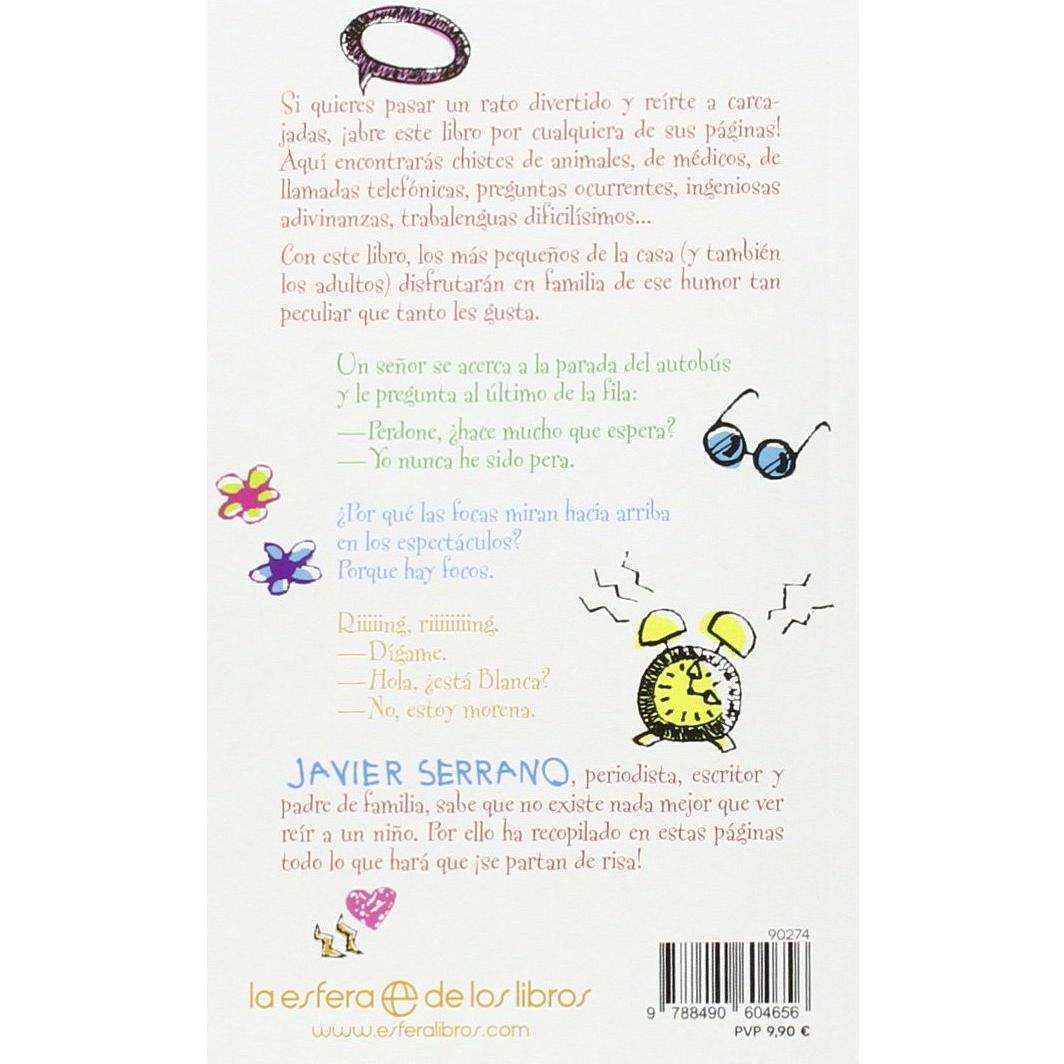 Si quieres pasar un rato divertido y reírte a carca-
jadas, ¡abre este libro por cualquiera de sus páginas!
Aquí encontrarás chistes de animales, de médicos, de
llamadas telefónicas, preguntas ocurrentes, ingeniosas
adivinanzas, trabalenguas dificilísimos...
Con este libro, los más pequeños de la casa (y también
los adultos) disfrutarán en familia de ese humor tan
peculiar que tanto les gusta.
Un señor se acerca a la parada del autobús
y le pregunta al último de la fila:
—Perdone, ¿hace mucho que espera?
—Yo nunca he sido pera.
¿Por qué las focas miran hacia arriba
en los espectáculos?
Porque hay focos.
Riiiiing, riiiiiiiing.
—Dígame.
—Hola, ¿está Blanca?
—No, estoy morena.
JAVIER SERRANO, periodista, escritor y
padre de familia, sabe que no existe nada mejor que ver
reír a un niño. Por ello ha recopilado en estas páginas
todo lo que hará que ¡se partan de risa!
la esfera e de los libros
www.esferalibros.com
90274
9 788490 604656
PVP 9,90 €